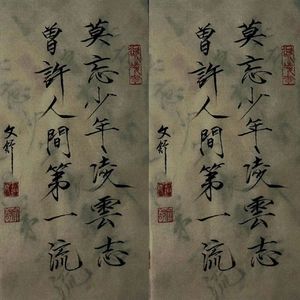 莫忘少年凌雲志
曾許人間第一流
文軒
莫忘少年凌雲志
曾許人間第一流
文軒